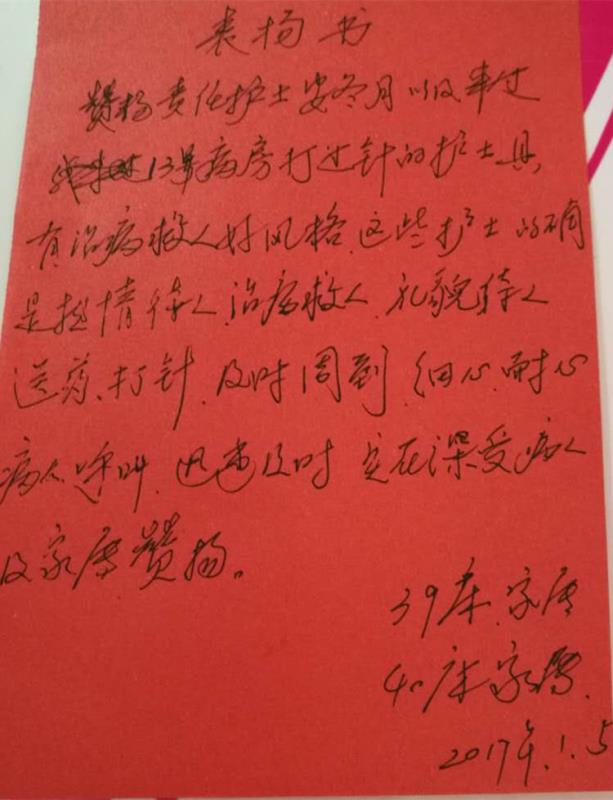 表扬书
赞扬责任护士安冬月以及来过
13号病房打过针的护士具
有治病救人好风格.这些护士的确
是热情待人.治病救人.礼貌待人
送药、打针.及时周到.细心.耐心
病人呼叫.迅速及时.实在深受病人
及家属赞扬。
39床.家属
40床家属.
2017年.1.5